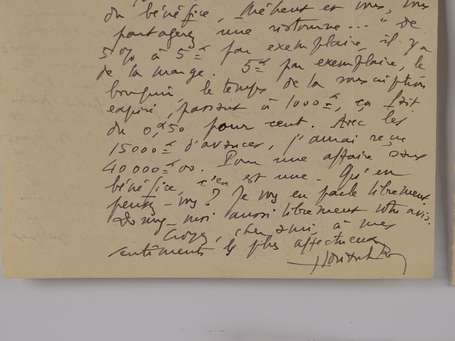 du bénéfice, Méheut et vous, vous
partagerez une ristourne... " de
5% à 5 par exemplaire, il y a
de la marge. 5 par exemplaire, le
bouquin le temps de la souscription
expiré, passant à 1000, ça fait
du 0,50 pour cent. Avec les
15000 d'avances, j'aurai reçu
40000 00. Pour une affaire sans
bénéfice, c'en est une. Qu'en
pensez-vous? Je vous en parle librement.
Donnez-moi aussi librement votre avis.
Croyez, cher ami, à mes
sentiments les plus affectueux